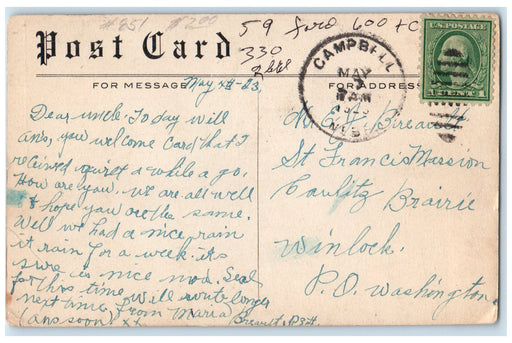 #851 $200
59 ford 600 + C
330
Post Card
FOR MESSAGE
FOR ADDRESS
CAMPBELL
MAY
AM
NEBR
U.S. POSTAGE
May 23,
Dear uncle: To day will
ans, you wellcome card that I
recived quiet a while a go.
How are you. we are all well
& hope you are the same.
Well we had a nice rain
it rain for a week. its
sure is nice now. Seal
for this time. Will write longer
next time, from Maria
(ans soon) xx Breault,
Mr. E. Breault
St Francis Mission
Cowlitz Brairie
Winlock.
P.O. Washington.